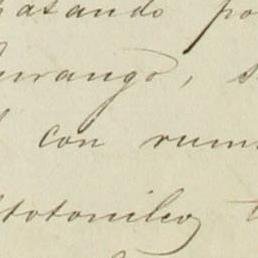 pasando po
Durango, s
con rumb
Atotonilco t